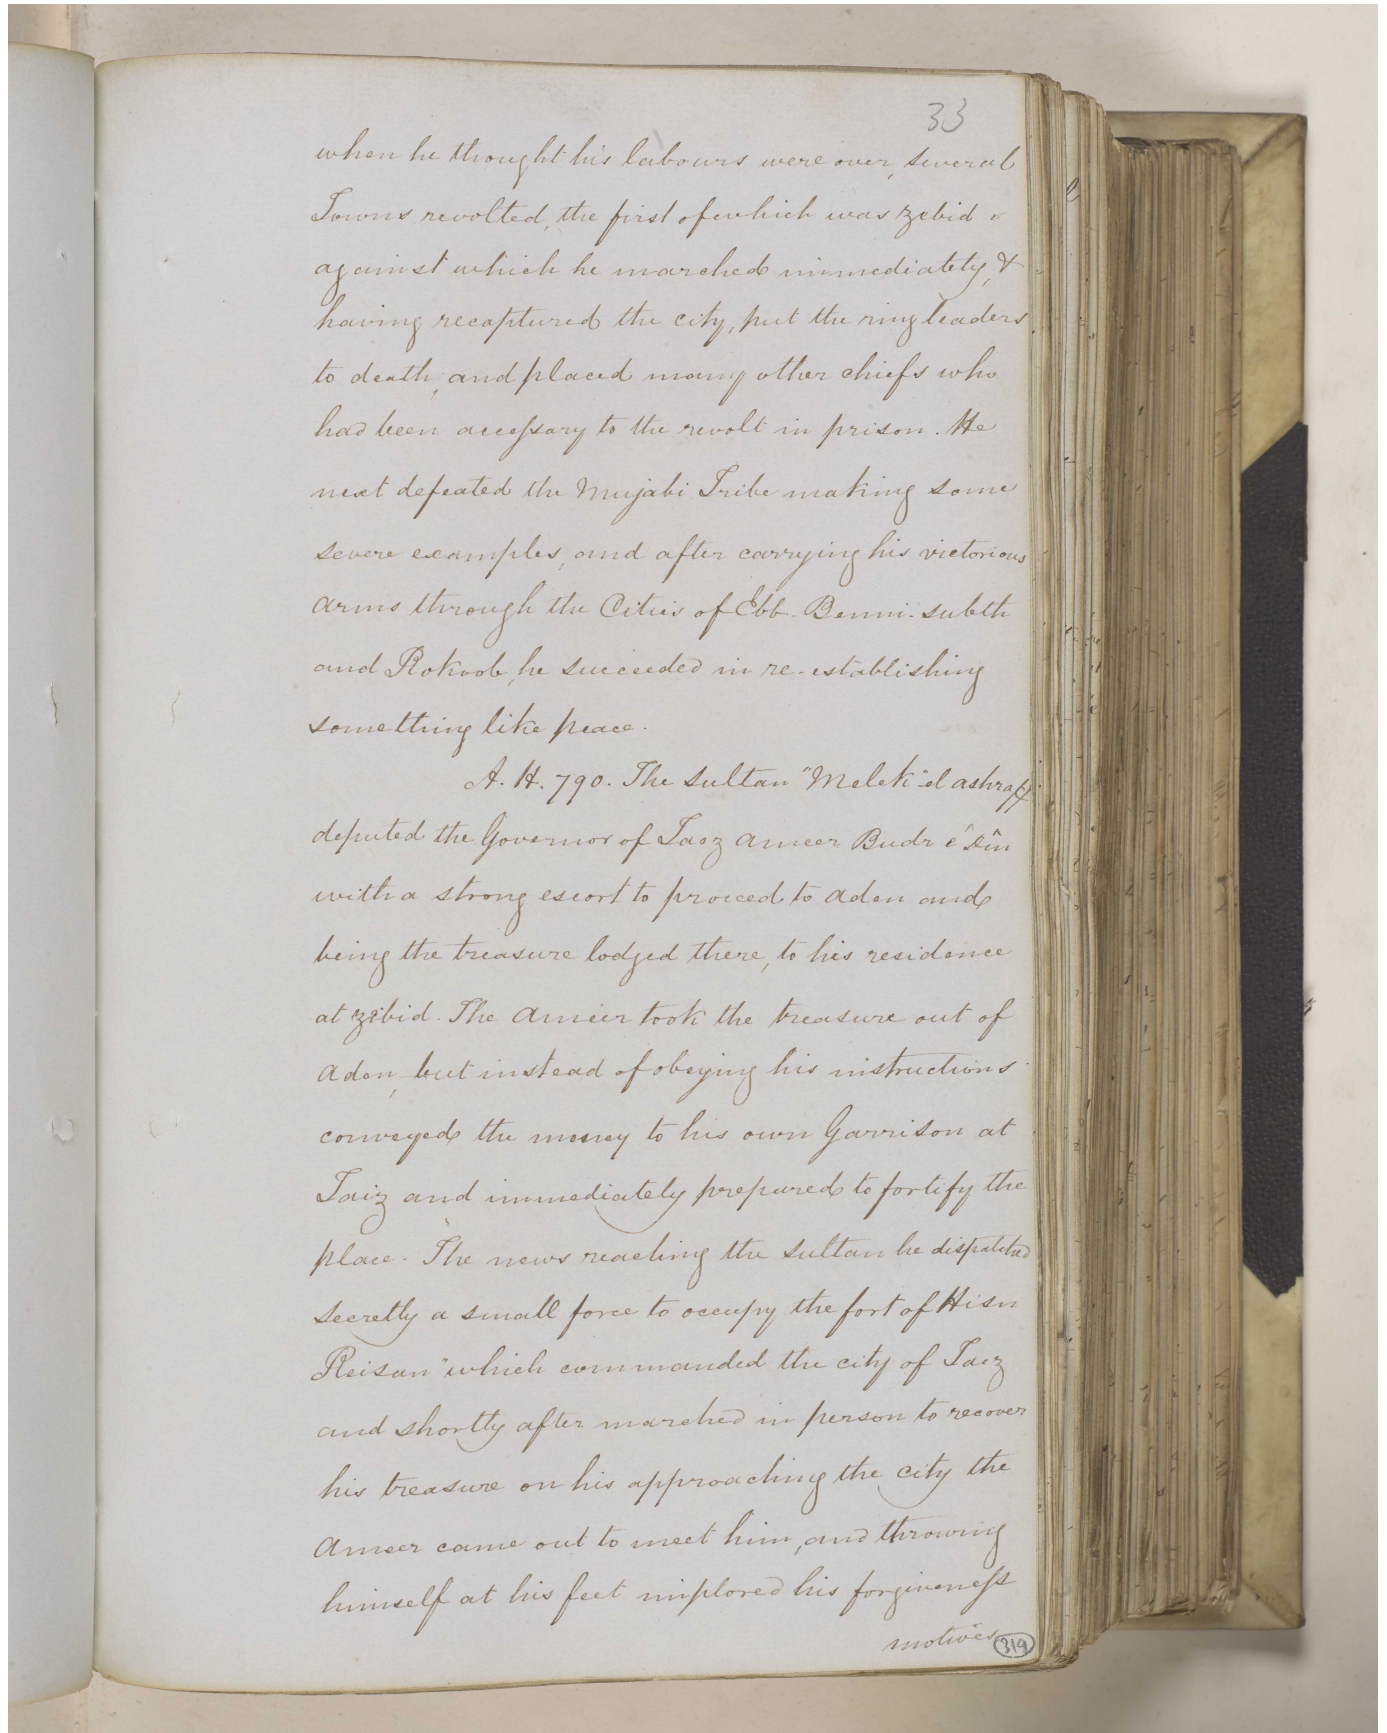 33
when he thought his labours were over, several
Towns revolted, the first of which was Zebid
against which he marched immediately, &
having recaptured the city, put the ringleaders
to death, and placed many other chiefs who
had been accessary to the revolt in prison. He
next defeated the Mujabi Tribe making some
severe examples, and after carrying his victorious
arms through the Cities of Ebb. Benni-subth
and Rokoob, he succeeded in re-establishing
something like peace.
A. H. 790. The Sultan "Melek" el ashraff
deputed the Governor of Taez Ameer Budr e' Dîn
with a strong escort to proceed to Aden and
being the treasure lodged there, to his residence
at Zebid. The Ameer took the treasure out of
Aden, but instead of obeying his instructions
conveyed the money to his own Garrison at
Taiz and immediately prepared to fortify the
place. The news reaching the Sultan he dispatched
secretly a small force to occupy the fort of Hisn
Reisan" which commanded the city of Taez
and shortly after marched in person to recover
his treasure on his approaching the city the
Ameer came out to meet him, and throwing
himself at his feet implored his forgiveness
motives
319